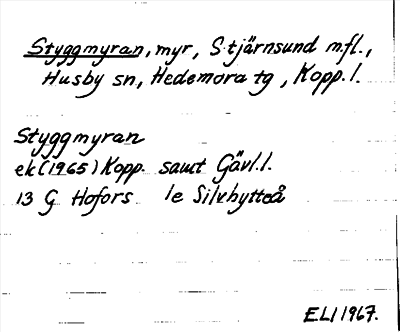 Styggmyran, myr, Stjärnsund m.fl.,
Husby sn, Hedemora tg, Kopp. l.
Styggmyran
ek (1965) Kopp. samt Gävl. l.
13 G Hofors 1e Silvhytteå
ELI 1967.